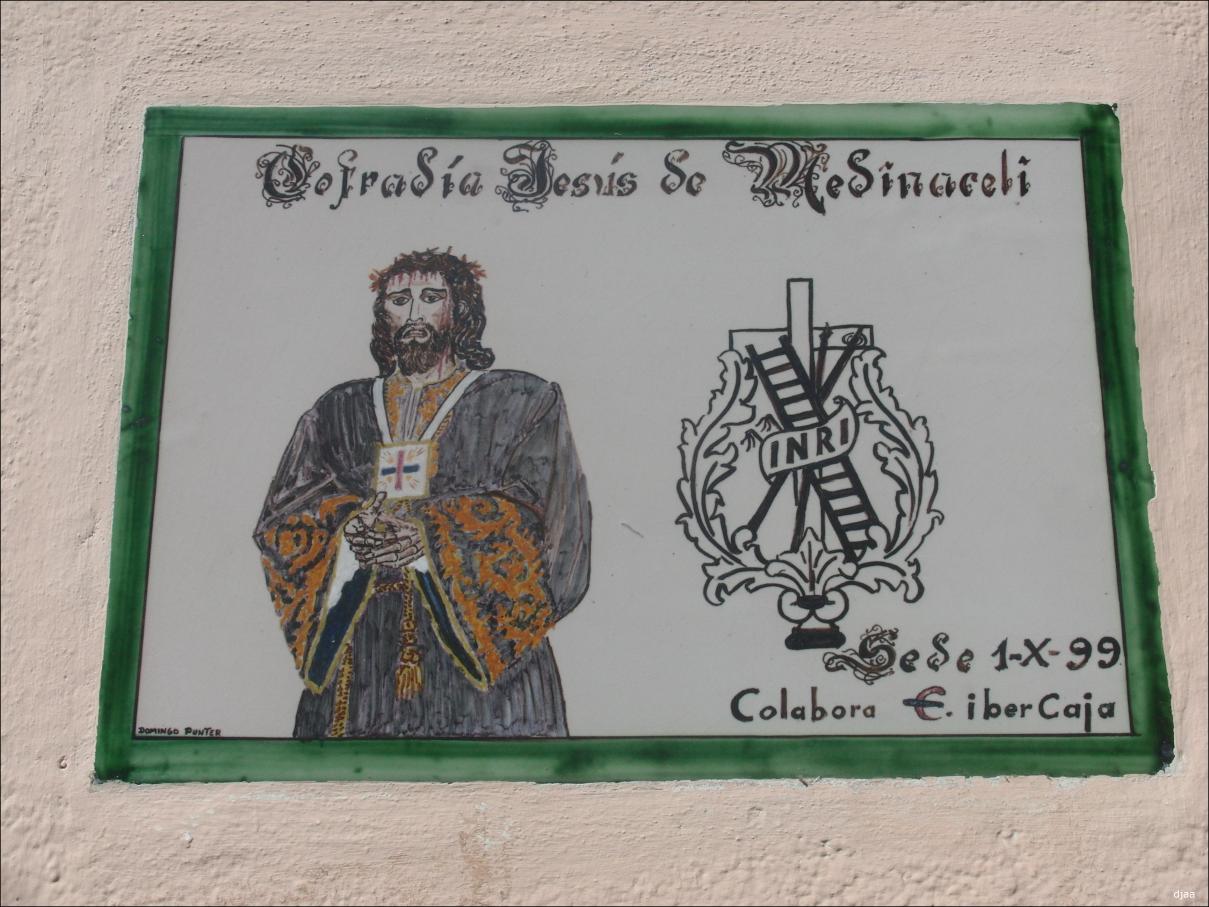 Cofradía Jesús de Medinaceli
INRI
Sede 1-X-99
Colabora €. iberCaja
DOMINGO PUNTER
djaa